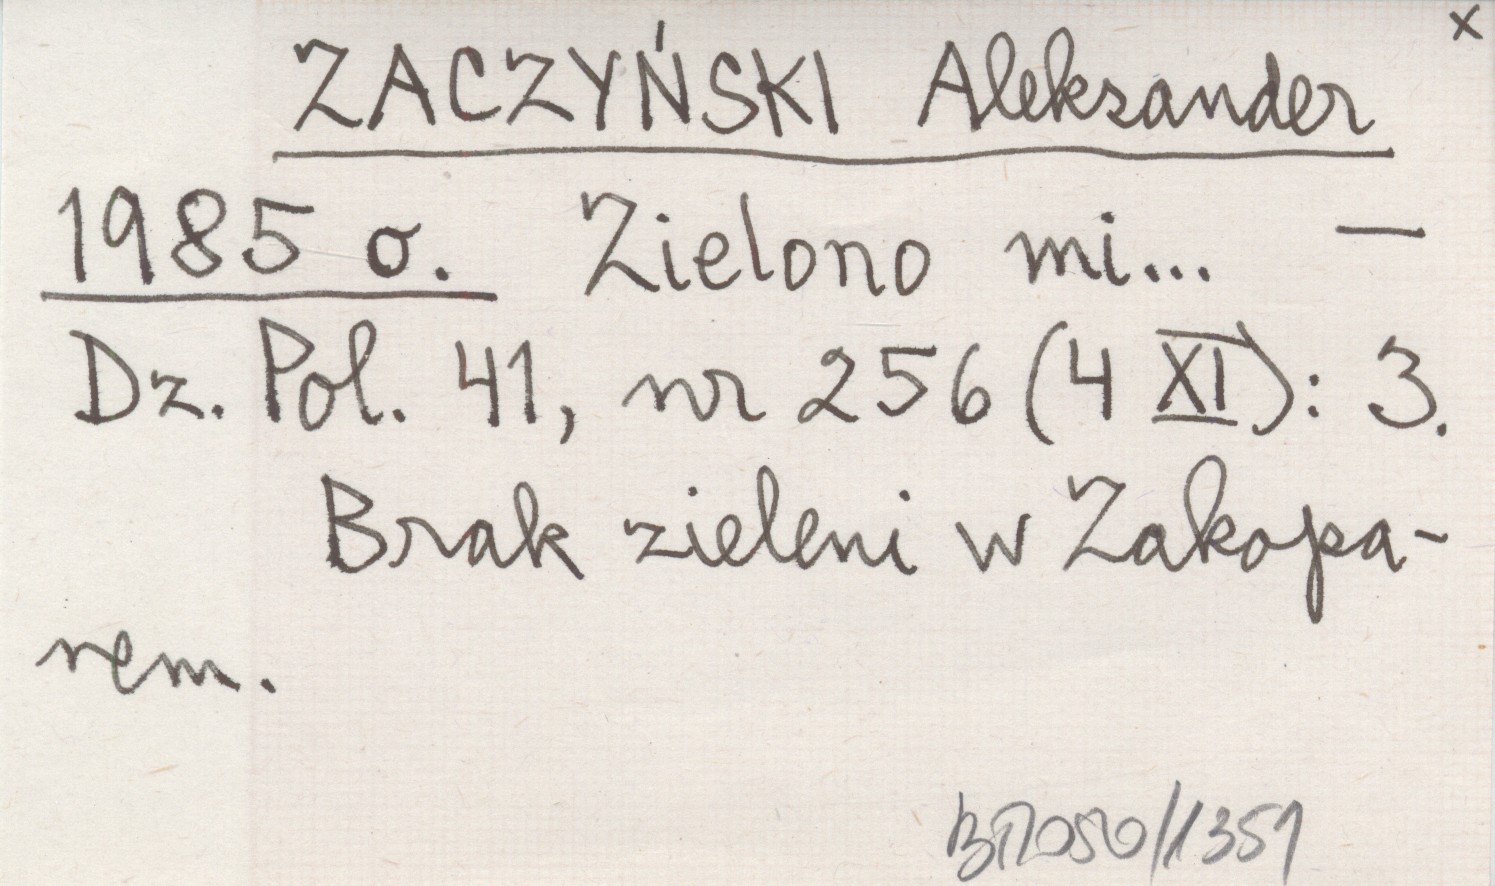 x
ZACZYŃSKI Aleksander
1985 o. Zielono mi... —
Dz. Pol. 41, nr 256 (4 XI): 3.
Brak zieleni w Zakopa-
nem.